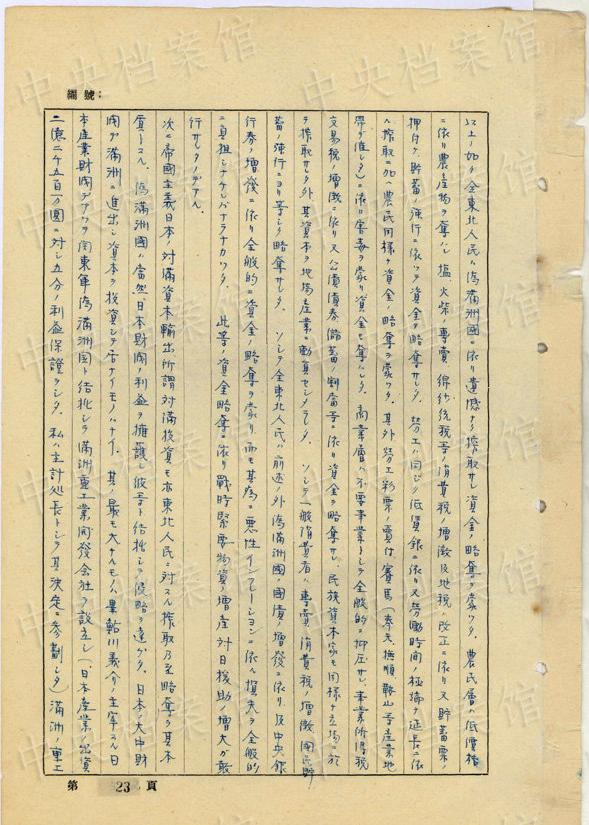 編號:
以上ノ如ク全東北人民ハ偽滿洲國ニ依リ遺憾ナク搾取サレ資金ノ略奪ヲ蒙ツタ。農民層ハ低價格
ニ依リ農産物ヲ奪ハレ塩、火柴ノ專賣、綿紗統税等ノ消費税ノ增徴及地税ノ改正ニ依リ又貯蓄票ノ
押付ケ貯蓄ノ強行ニ依ツテ資金ヲ略奪サレタ。勞工ハ同ジク低賃銀ニ依リ又勞働時間ノ極端ナ延長ニ依
ル搾取ニ加ヘ農民同様ナ資金ノ略奪ヲ蒙ツタ。其外勞工彩票ノ賣付賽馬(奉天、撫順鞍山等産業地
帯ガ
ニ依リ害毒ヲ蒙リ資金ヲ奪ハレタ。商業層ハ不要事業トシテ全般的ニ抑圧サレ事業所得税
交易税ノ增徴ニ依リ又公債債券儲蓄ノ割當等ニ依リ資金ヲ略奪サレ、民族資本家モ同様ナ立場ニ於
テ搾取サレタ外其資本ヲ地場産業ニ動員セシメラレタ。ソシテ一般消費者ハ專賣、消費税ノ增徴國民貯
蓄ノ強行ニヨリ等シク略奪サレタ。ソシテ全東北人民ハ前述ノ外偽滿洲國ノ國債ノ增發ニ依リ及中央銀
行券ノ增發ニ依リ全般的ニ資金ノ略奪ヲ蒙リ而モ其為ニ悪性インフレーションニ依ル損失ヲ全般的
ニ負担シナケレバナラナカツタ。此等ノ資金略奪ニ依リ戰時緊要物資ノ增産対日援助ノ增大ガ敢
行サレタノデアル。
次ニ帝國主義日本ノ対滿資本輸出所謂対滿投資モ亦東北人民ニ対スル搾取乃至略奪ヲ其本
質トスル。偽滿洲國ハ當然ニ日本財閥ノ利益ヲ擁護シ彼等ト結托シテ侵略ヲ遂ゲタ。日本ノ大中財
閥デ滿洲ニ進出シ資本ヲ投資シテ居ナイモノハナイ。其ノ最モ大ナルモノハ鮎川義介ノ主宰スル日
本産業財閥デアツテ関東軍偽滿洲國ト結托シテ滿洲重工業開發会社ヲ設立シ(日本産業ノ出資
二億二千五百万圓ニ対シ五分ノ利益保證ヲシタ。私ハ主計処長トシテ其決定ニ参劃シタ)滿洲ノ重工
第 23 頁